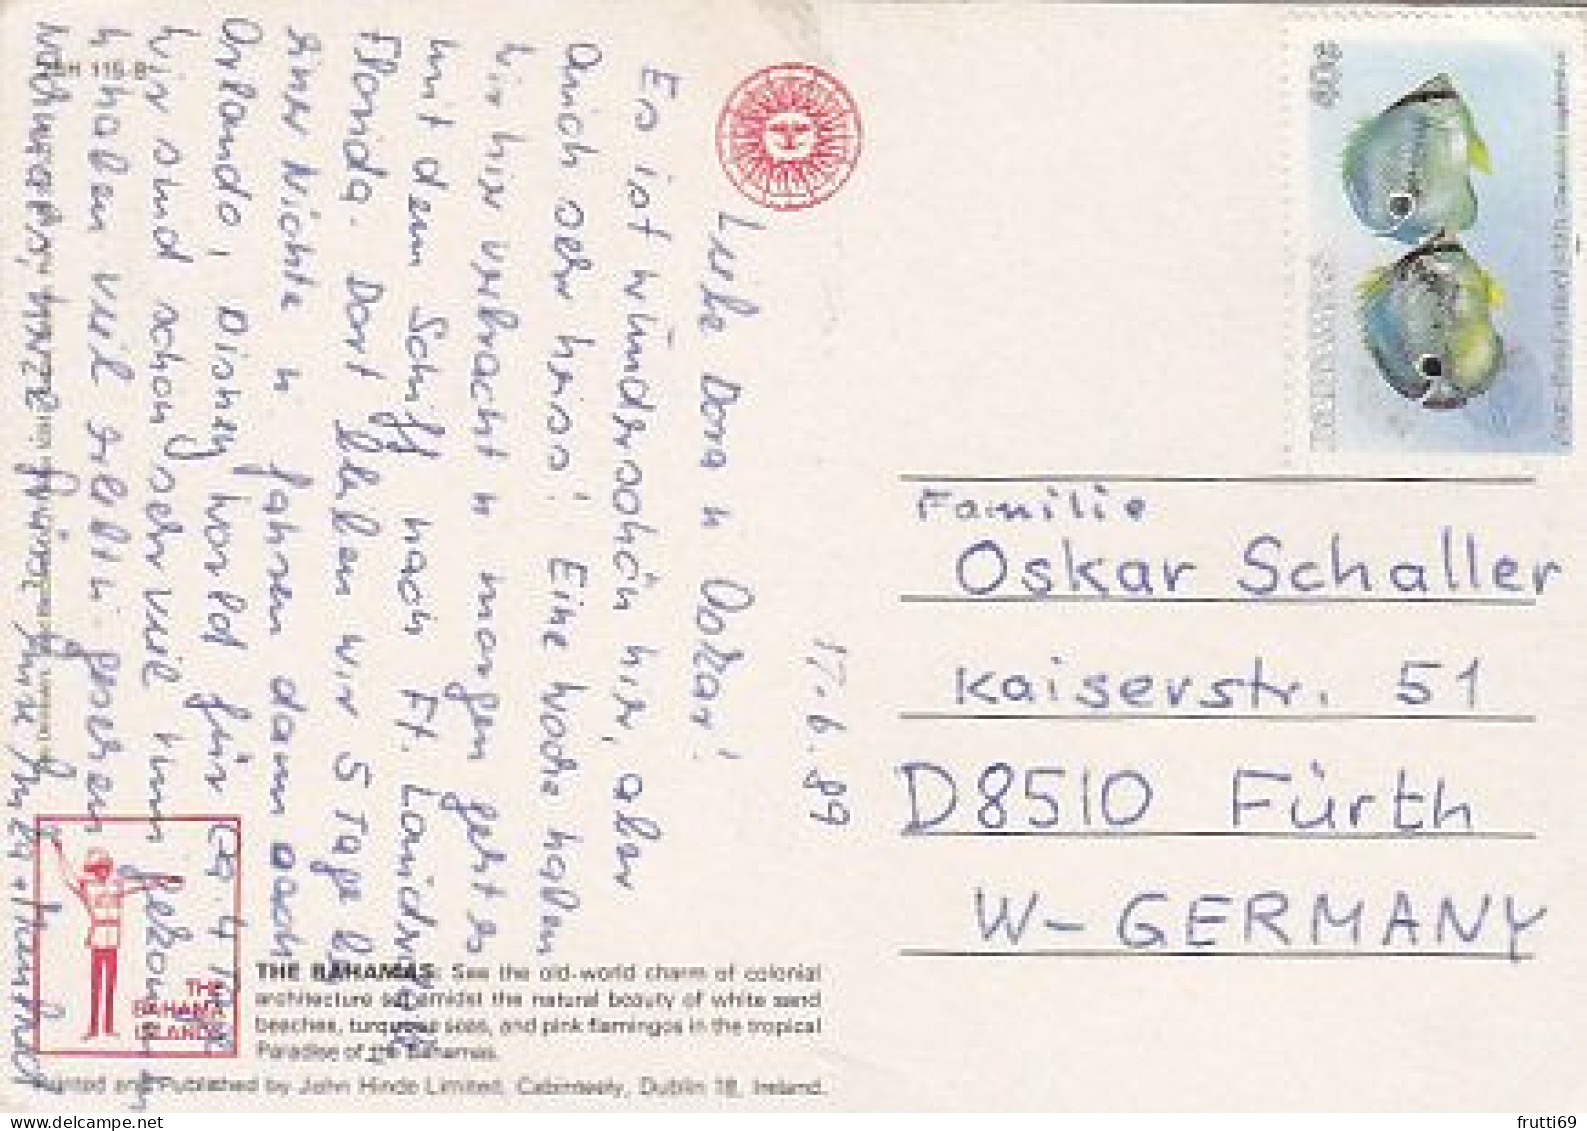 17.6.89
Liebe Dora u Oskar!
Es ist wunderschön hier, aber
auch sehr heiss! Eine Woche haben
wir hier verbracht u morgen geht es
mit dem Schiff nach Ft. Lauderdale
Florida. Dort bleiben wir 5 Tage bei
einer Nichte u fahren dann nach
Orlando, Disney World für ca. 4 Tage
Wir sind schon sehr viel rum gekommen
u haben viel gesehen.
BAHAMAS
Familie
Oskar Schaller
Kaiserstr. 51
D8510 Fürth
W-GERMANY
THE
BAHAMA
ISLANDS
THE BAHAMAS: See the old-world charm of colonial
architecture set amidst the natural beauty of white sand
beaches, turquoise seas, and pink flamingos in the tropical
Paradise of the Bahamas.
Printed and Published by John Hinde Limited, Cabinteely, Dublin 18, Ireland.
frutti69